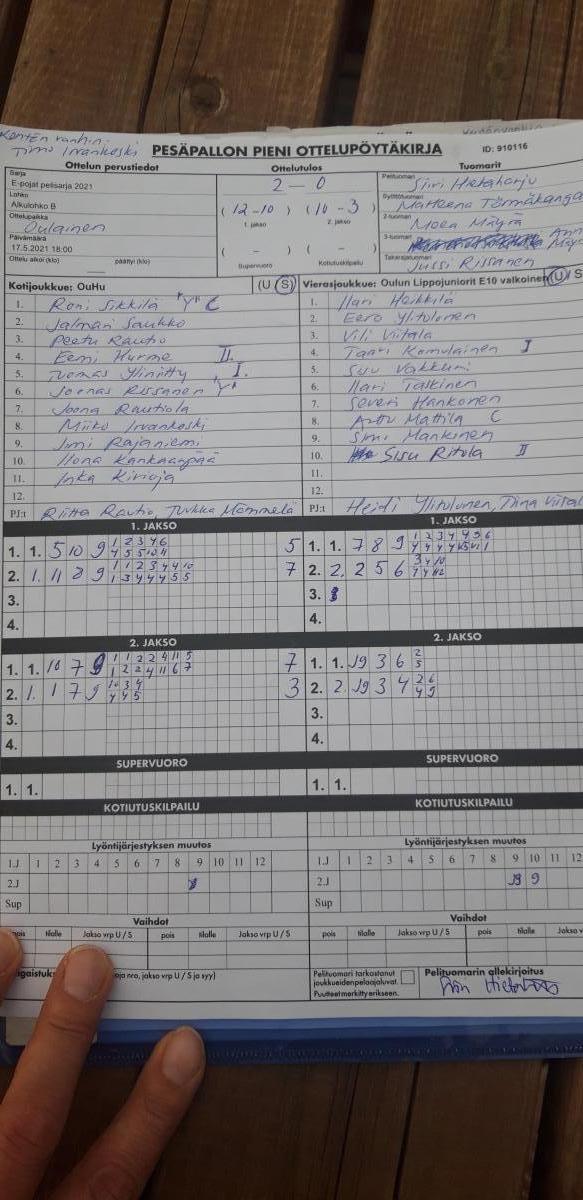 Kentän vanhin:
Timo Irvankoski
PESÄPALLON PIENI OTTELUPÖYTÄKIRJA ID: 910116
Ottelun perustiedot
Sarja
E-pojat pelisarja 2021
Lohko
Alkulohko B
Ottelupaikka
Oulainen
Päivämäärä
17.5.2021 18:00
Ottelu alkoi (klo) päättyi (klo)
Ottelutulos
2 - 0
( 12-10 ) ( 10 - 3 )
1. jakso 2. jakso
( - ) ( - )
Supervuoro Kotiutuskilpailu
Tuomarit
Pelituomari
Siiri Hietaharju
Syöttötuomari
2-tuomari
Moea Mäyrä
3-tuomari
Takarajatuomari
Jussi Rissanen
Kotijoukkue: OuHu (U S)
1. Roni Sikkilä "Y" C
2. Jalmari Saukko
3. Peetu Rautio
4. Eemi Hurme II.
5. Tuomas Ylinitty I.
6. Joonas Rissanen "Y"
7. Joona Rautiola
8. Miiko Irvankoski
9. Jimi Rajaniemi
10. Ilona Kankaanpää
11. Inka Kirioja
12.
PJ:t Riitta Rautio, Jukka Mömmelä
Vierasjoukkue: Oulun Lippojuniorit E10 valkoinen (U S
1. Ilari Heikkilä
2. Eero Ylitulonen
3. Vili Viitala
4. Taari Komulainen I
5. Suu Vakkuri
6. Ilari Taskinen
7. Severi Hankonen
8. Arttu Mattila C
9. Simo Mankinen
10. Sisu Ritola II
11.
12.
PJ:t Heidi Ylitulonen, Tiina Viital
1. JAKSO
1. 1. 5 10 9 1 2 3 4 6 5
4 5 5 10 4
2. 1. 11 8 9 1 1 2 3 4 4 10 7
1 3 4 4 4 5 5
3.
4.
1. JAKSO
1. 1. 7 8 9 1 2 3 4 5 6
2. 2. 2 5 6 3 4 10
3.
4.
2. JAKSO
1. 1. 10 7 9 1 1 2 2 4 11 5 7
1 2 2 4 11 6 7
2. 1. 1 7 9 10 3 4 3
4 4 5
3.
4.
2. JAKSO
1. 1. 9 3 6 2
5
2. 2. 9 3 4 2 6
4 9
3.
4.
SUPERVUORO
1. 1.
SUPERVUORO
1. 1.
KOTIUTUSKILPAILU
KOTIUTUSKILPAILU
Lyöntijärjestyksen muutos
1.J 1 2 3 4 5 6 7 8 9 10 11 12
2.J
Sup
Lyöntijärjestyksen muutos
1.J 1 2 3 4 5 6 7 8 9 10 11 12
2.J 9
Sup
Vaihdot
pois tilalle Jakso vrp U / S pois tilalle Jakso vrp U / S
Vaihdot
pois tilalle Jakso vrp U / S pois tilalle Jakso v
oja nro, jakso vrp U / S ja syy)
Pelituomari tarkastanut
joukkueiden pelaajaluvat.
Puutteet merkitty erikseen.
Pelituomarin allekirjoitus